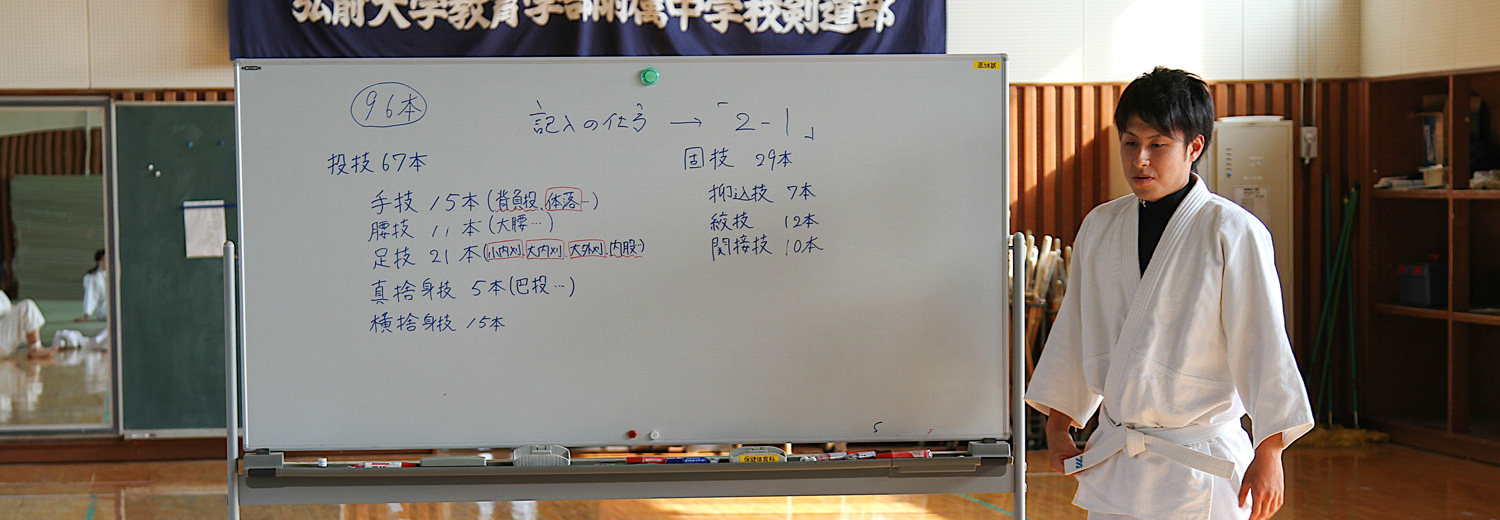 弘前大学教育学部附属中学校剣道部
96本
記入の仕方 → 「2-1」
投技 67本
手技 15本(背負投、体落…)
腰技 11本(大腰…)
足技 21本(小内刈、大内刈、大外刈、内股…)
真捨身技 5本(巴投…)
横捨身技 15本
固技 29本
抑込技 7本
絞技 12本
関接技 10本
5
5
保健体育科